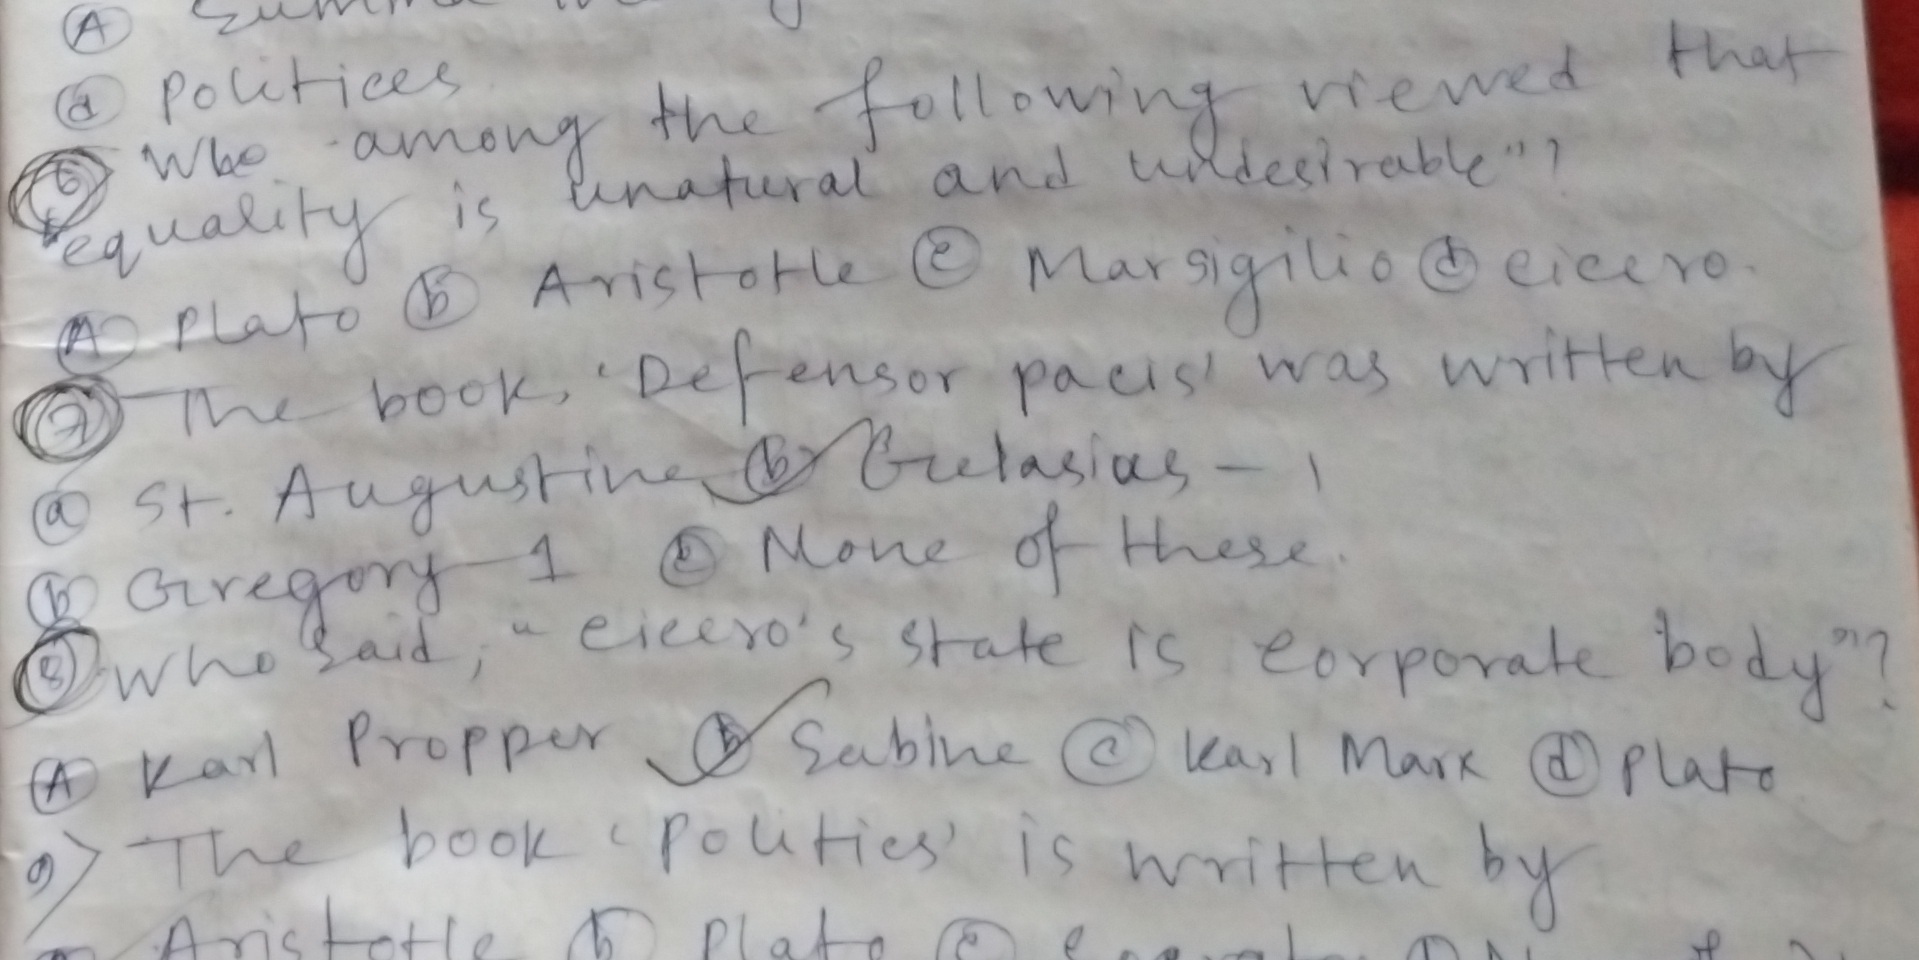 (A) Summa
(d) Politices
(6) Who among the following viewed that
"equality is unatural and undesirable"?
(A) Plato (b) Aristotle (c) Marsigilio (d) cicero.
(7) The book, 'Defensor pacis' was written by
(a) St. Augustine (b) Gelasias - 1
(b) Gregory - 1 (c) None of these.
(8) Who said, "cicero's state is corporate body"?
(A) Karl Propper (b) Sabine (c) Karl Marx (d) Plato
9) The book 'Politics' is written by
Aristotle (b) Plato (c)